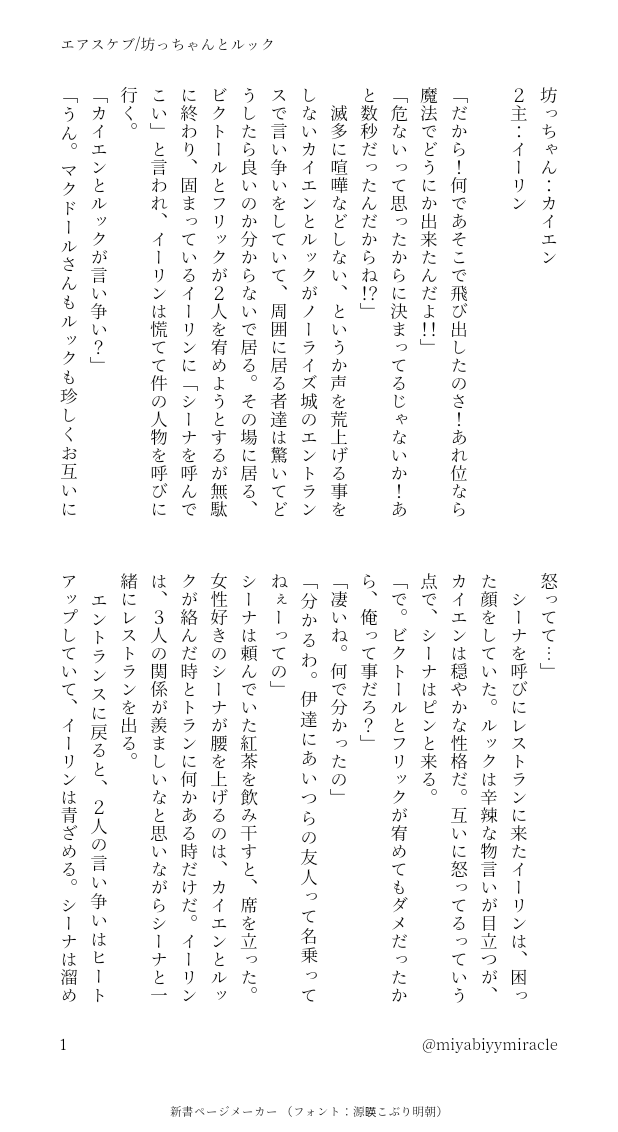 エアスケブ/坊っちゃんとルック
坊っちゃん：カイエン
２主：イーリン
「だから！何であそこで飛び出したのさ！あれ位なら
魔法でどうにか出来たんだよ!!」
「危ないって思ったからに決まってるじゃないか！あ
と数秒だったんだからね!?」
　滅多に喧嘩などしない、というか声を荒上げる事を
しないカイエンとルックがノーライズ城のエントラン
スで言い争いをしていて、周囲に居る者達は驚いてど
うしたら良いのか分からないで居る。その場に居る、
ビクトールとフリックが２人を宥めようとするが無駄
に終わり、固まっているイーリンに「シーナを呼んで
こい」と言われ、イーリンは慌てて件の人物を呼びに
行く。
「カイエンとルックが言い争い？」
「うん。マクドールさんもルックも珍しくお互いに
怒ってて…」
　シーナを呼びにレストランに来たイーリンは、困っ
た顔をしていた。ルックは辛辣な物言いが目立つが、
カイエンは穏やかな性格だ。互いに怒ってるっていう
点で、シーナはピンと来る。
「で。ビクトールとフリックが宥めてもダメだったか
ら、俺って事だろ？」
「凄いね。何で分かったの」
「分かるわ。伊達にあいつらの友人って名乗って
ねぇーっての」
シーナは頼んでいた紅茶を飲み干すと、席を立った。
女性好きのシーナが腰を上げるのは、カイエンとルッ
クが絡んだ時とトランに何かある時だけだ。イーリン
は、３人の関係が羨ましいなと思いながらシーナと一
緒にレストランを出る。
　エントランスに戻ると、２人の言い争いはヒート
アップしていて、イーリンは青ざめる。シーナは溜め
1
@miyabiyymiracle
新書ページメーカー（フォント：源暎こぶり明朝）